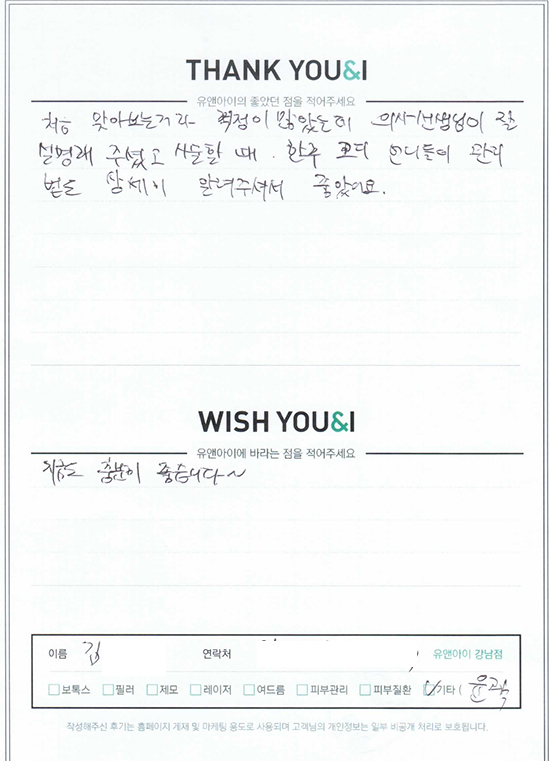 THANK YOU&I
유앤아이의 좋았던 점을 적어주세요
처음 맞아보는거라 걱정이 많았는데 의사선생님이 잘
설명해 주셨고 시술할 때. 한주 코디 언니들이 관리
법도 상세히 알려주셔서 좋았어요.
WISH YOU&I
유앤아이에 바라는 점을 적어주세요
지금도 충분히 좋습니다~
이름 김 연락처 유앤아이 강남점
보톡스 필러 제모 레이저 여드름 피부관리 피부질환 기타 ( 윤곽
작성해주신 후기는 홈페이지 게재 및 마케팅 용도로 사용되며 고객님의 개인정보는 일부 비공개 처리로 보호됩니다.